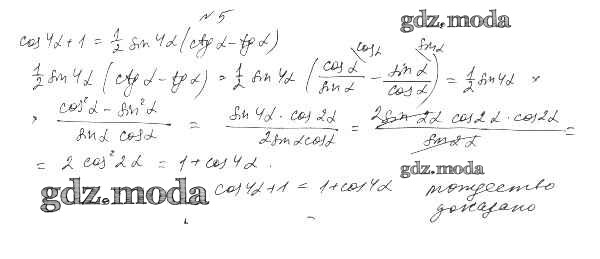 №5
gdz.moda
cos4α+1 = 1/2 sin4α(ctgα-tgα)
1/2 sin4α (ctgα-tgα) = 1/2 sin4α (cosα/sinα - sinα/cosα) = 1/2 sin4α ×
cosα sinα
× cos²α - sin²α / sinα cosα = sin4α · cos2α / 2sinαcosα = 2sin2α cos2α · cos2α / sin2α =
= 2 cos²2α = 1+cos4α.
gdz.moda
gdz.moda
cos4α+1 = 1+cos4α тождество
доказано